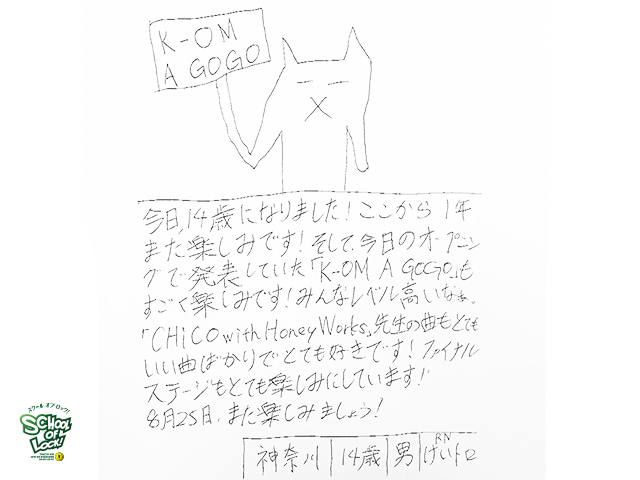 K-OM
A GOGO
今日、14歳になりました！ここから1年
また楽しみです！そして、今日のオープニン
グで発表していた「K-OM A GOGO」も
すごく楽しみです！みんなレベル高いなぁ。
「CHiCO with Honey Works」先生の曲もとても
いい曲ばかりでとても好きです！ファイナル
ステージもとても楽しみにしています！
8月25日、また楽しみましょう！
神奈川 14歳 男 RN けいトロ
スクール オブ ロック!
SCHOOL
OF
LOCK!